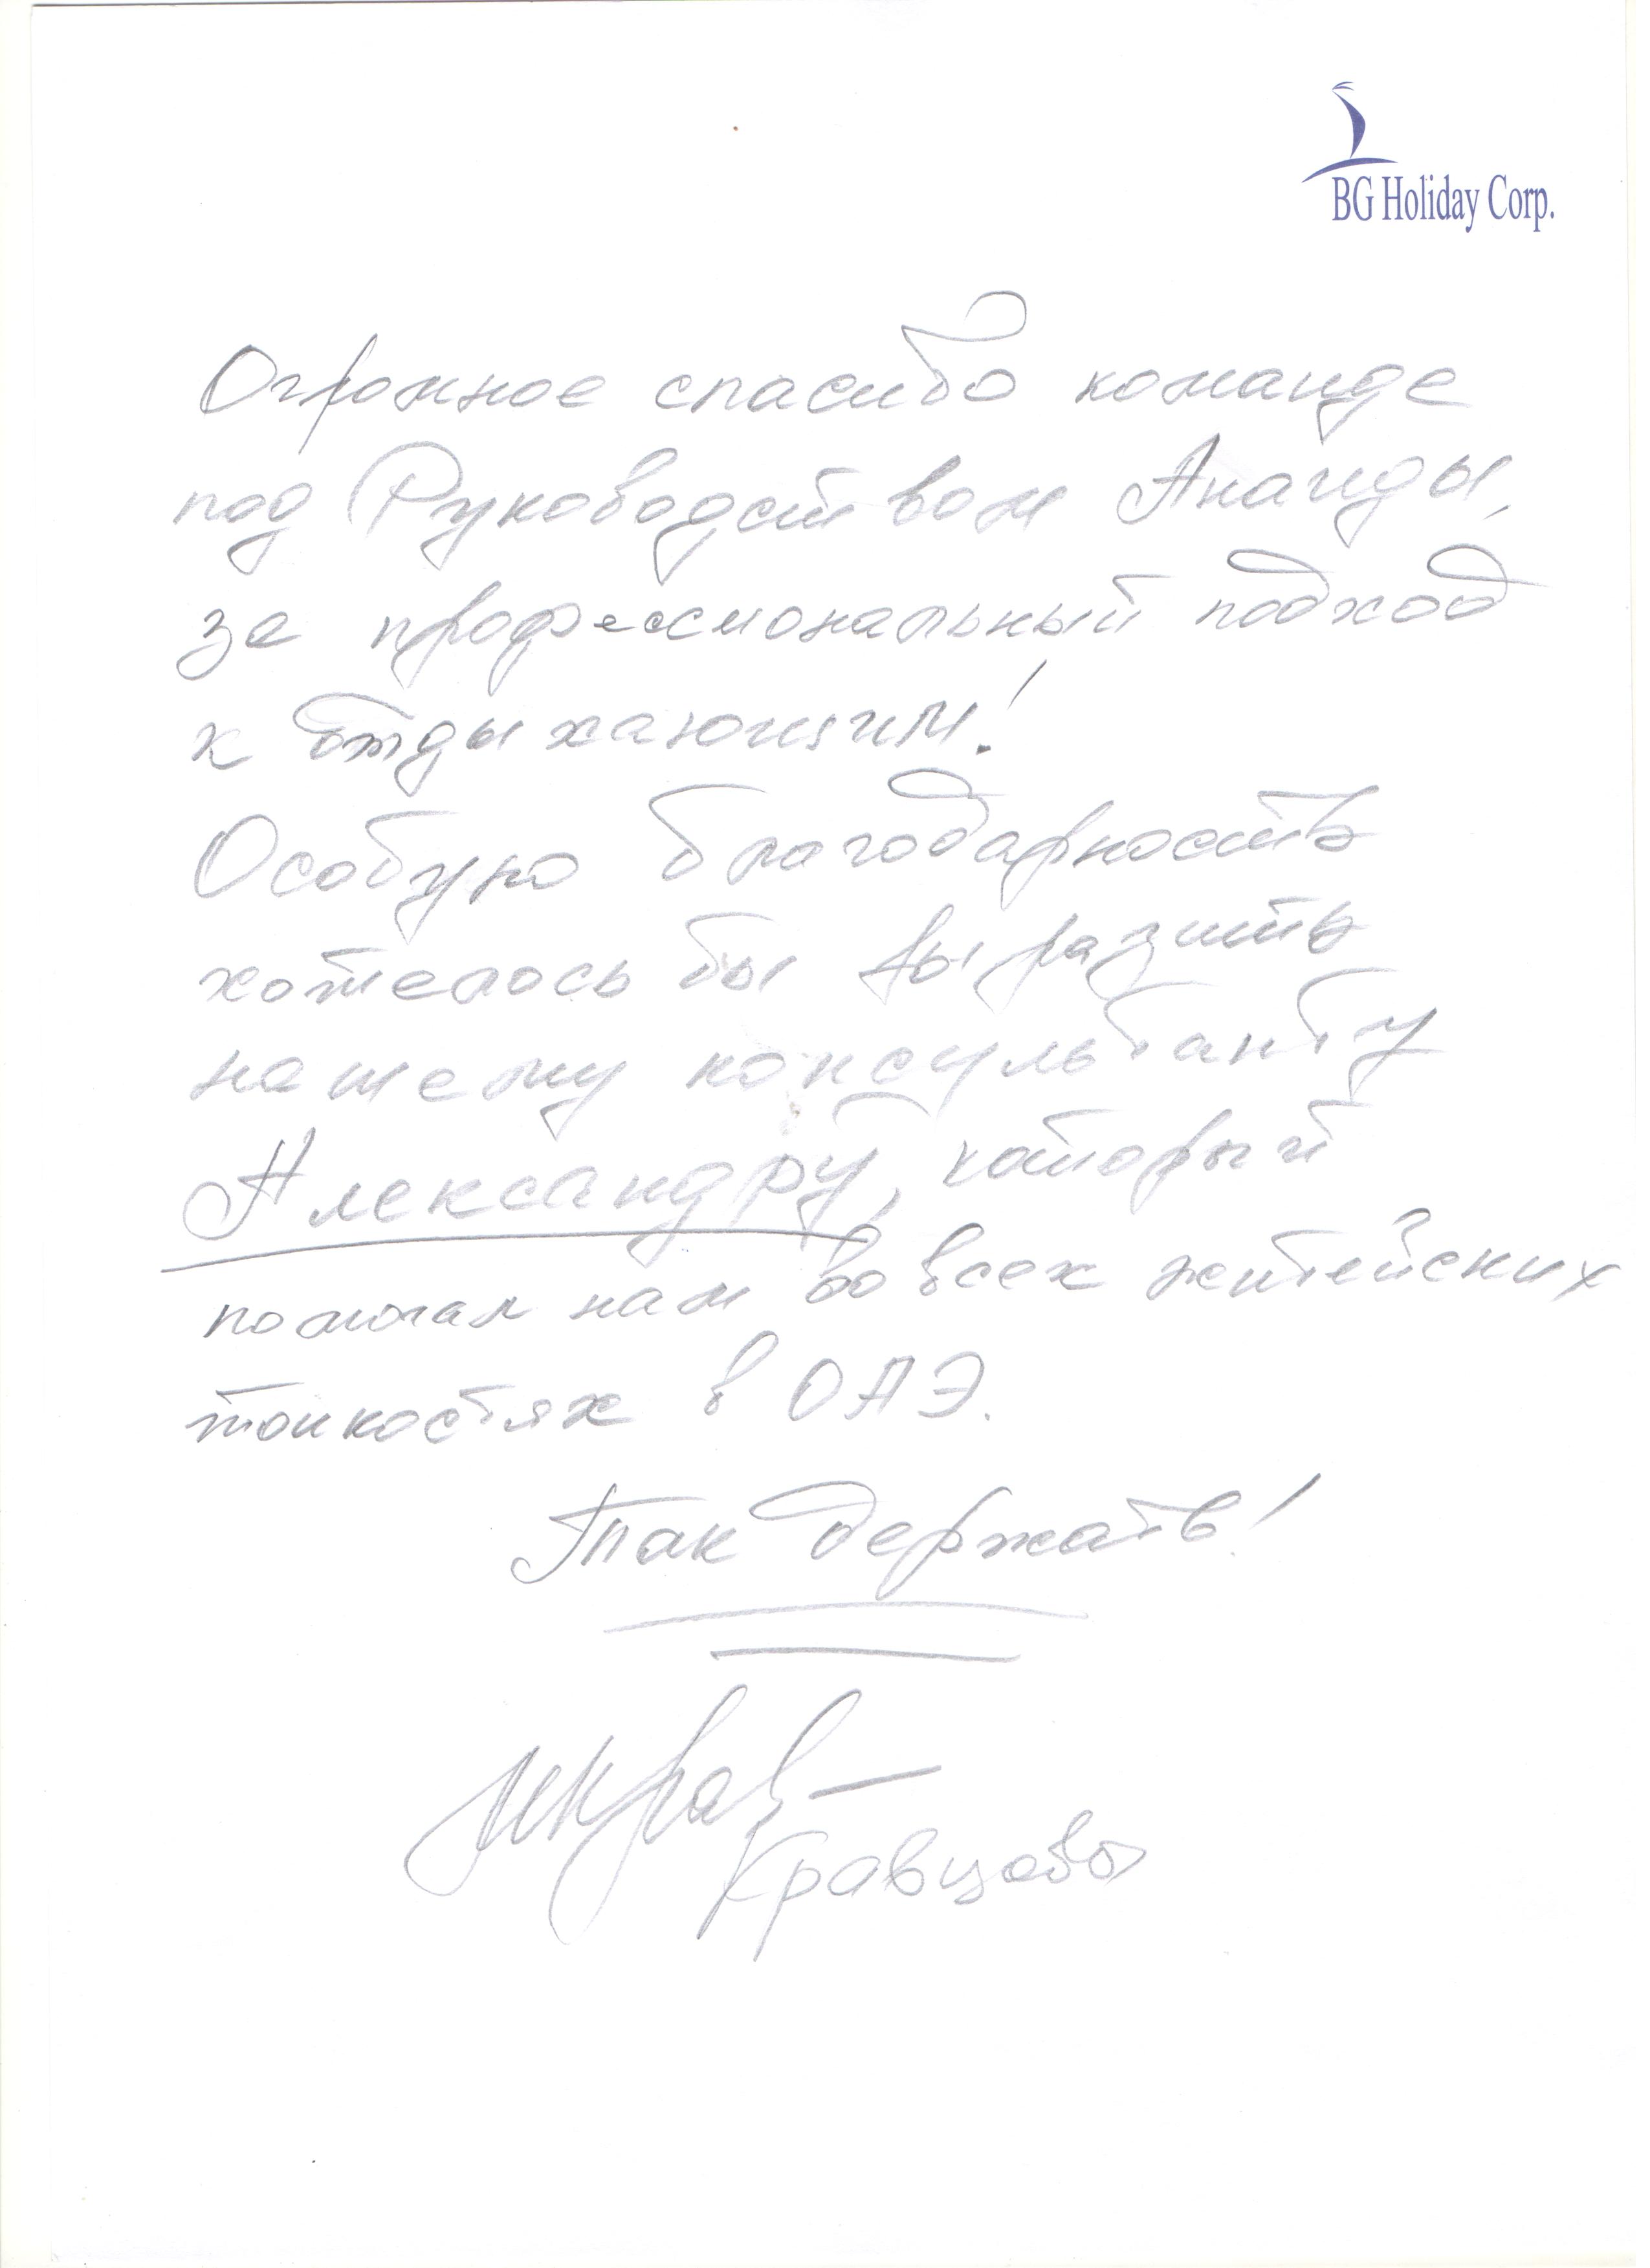 BG Holiday Corp.
Огромное спасибо команде
под Руководством Ананды,
за профессиональный подход
к отдыхающим!
Особую благодарность
хотелось бы выразить
нашему консультанту
Александру, который
помогал нам во всех житейских
тонкостях в ОАЭ.
Так держать!
Кравцова